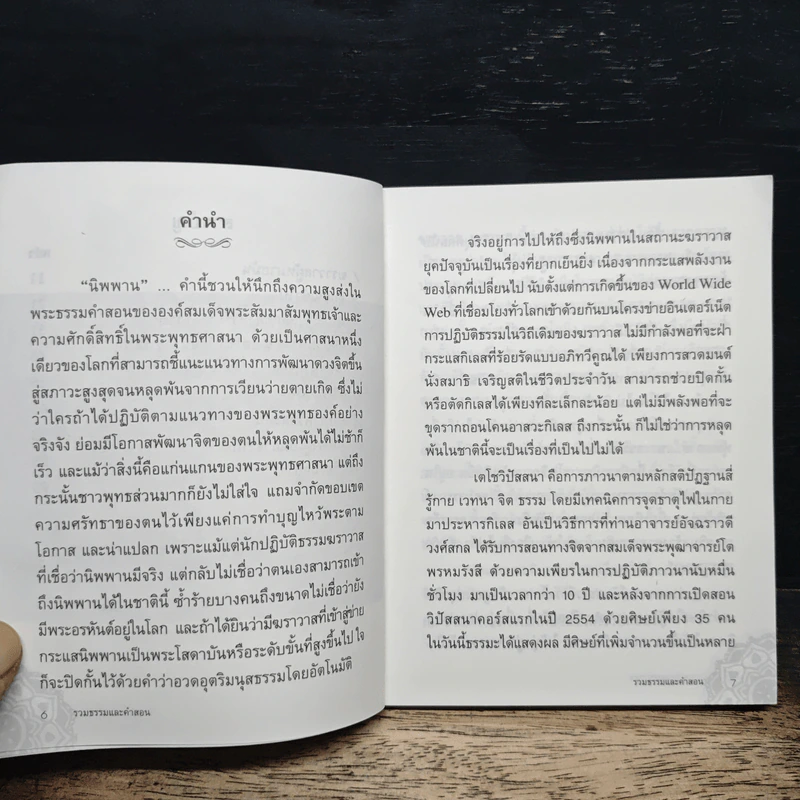 คำนำ
“นิพพาน” ... คำนี้ชวนให้นึกถึงความสูงส่งใน
พระธรรมคำสอนขององค์สมเด็จพระสัมมาสัมพุทธเจ้าและ
ความศักดิ์สิทธิ์ในพระพุทธศาสนา ด้วยเป็นศาสนาหนึ่ง
เดียวของโลกที่สามารถชี้แนะแนวทางการพัฒนาดวงจิตขึ้น
สู่สภาวะสูงสุดจนหลุดพ้นจากการเวียนว่ายตายเกิด ซึ่งไม่
ว่าใครถ้าได้ปฏิบัติตามแนวทางของพระพุทธองค์อย่าง
จริงจัง ย่อมมีโอกาสพัฒนาจิตของตนให้หลุดพ้นได้ไม่ช้าก็
เร็ว และแม้ว่าสิ่งนี้คือแก่นแกนของพระพุทธศาสนา แต่ถึง
กระนั้นชาวพุทธส่วนมากก็ยังไม่ใส่ใจ แถมจำกัดขอบเขต
ความศรัทธาของตนไว้เพียงแค่การทำบุญไหว้พระตาม
โอกาส และน่าแปลก เพราะแม้แต่นักปฏิบัติธรรมฆราวาส
ที่เชื่อว่านิพพานมีจริง แต่กลับไม่เชื่อว่าตนเองสามารถเข้า
ถึงนิพพานได้ในชาตินี้ ซ้ำร้ายบางคนถึงขนาดไม่เชื่อว่ายัง
มีพระอรหันต์อยู่ในโลก และถ้าได้ยินว่ามีฆราวาสที่เข้าสู่ข่าย
กระแสนิพพานเป็นพระโสดาบันหรือระดับขั้นที่สูงขึ้นไป ใจ
ก็จะปิดกั้นไว้ด้วยคำว่าอวดอุตริมนุสธรรมโดยอัตโนมัติ
6 รวมธรรมและคำสอน
จริงอยู่การไปให้ถึงซึ่งนิพพานในสถานะฆราวาส
ยุคปัจจุบันเป็นเรื่องที่ยากเย็นยิ่ง เนื่องจากกระแสพลังงาน
ของโลกที่เปลี่ยนไป นับตั้งแต่การเกิดขึ้นของ World Wide
Web ที่เชื่อมโยงทั่วโลกเข้าด้วยกันบนโครงข่ายอินเตอร์เน็ต
การปฏิบัติธรรมในวิถีเดิมของฆราวาส ไม่มีกำลังพอที่จะฝ่า
กระแสกิเลสที่ร้อยรัดแบบอภิทวีคูณได้ เพียงการสวดมนต์
นั่งสมาธิ เจริญสติในชีวิตประจำวัน สามารถช่วยปิดกั้น
หรือตัดกิเลสได้เพียงทีละเล็กละน้อย แต่ไม่มีพลังพอที่จะ
ขุดรากถอนโคนอาสวะกิเลส ถึงกระนั้น ก็ไม่ใช่ว่าการหลุด
พ้นในชาตินี้จะเป็นเรื่องที่เป็นไปไม่ได้
เตโชวิปัสสนา คือการภาวนาตามหลักสติปัฏฐานสี่
รู้กาย เวทนา จิต ธรรม โดยมีเทคนิคการจุดธาตุไฟในกาย
มาประหารกิเลส อันเป็นวิธีการที่ท่านอาจารย์อัจฉราวดี
วงศ์สกล ได้รับการสอนทางจิตจากสมเด็จพระพุฒาจารย์โต
พรหมรังสี ด้วยความเพียรในการปฏิบัติภาวนานับหมื่น
ชั่วโมง มาเป็นเวลากว่า 10 ปี และหลังจากการเปิดสอน
วิปัสสนาคอร์สแรกในปี 2554 ด้วยศิษย์เพียง 35 คน
ในวันนี้ธรรมะได้แสดงผล มีศิษย์ที่เพิ่มจำนวนขึ้นเป็นหลาย
รวมธรรมและคำสอน 7